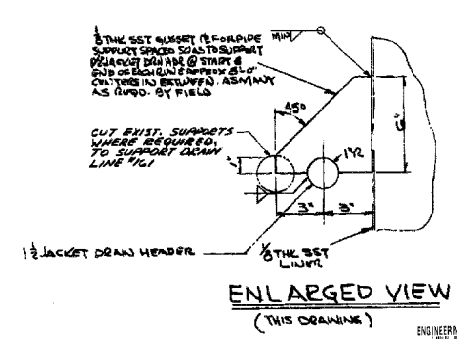 ⅛ THK SST GUSSET FOR PIPE
SUPPORT SPACED SO AS TO SUPPORT
JACKET DRN HDR @ START &
END OF EACH RUN & APPROX
CENTERS IN BETWEEN. AS MANY
AS REQD. BY FIELD
MIN
45°
CUT EXIST. SUPPORTS
WHERE REQUIRED,
TO SUPPORT DRAIN
LINE #161
6"
3"
3"
1½ JACKET DRAN HEADER
⅛ THK SST
LINER
ENLARGED VIEW
(THIS DRAWING)